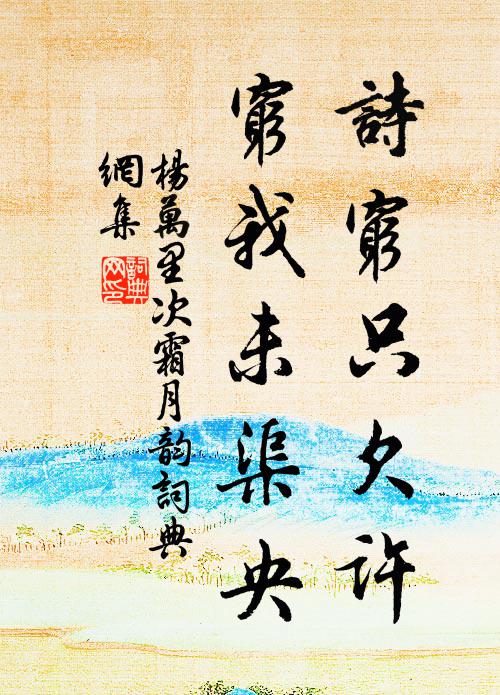 詩窮只久許
窮我未渠央
楊萬里次霜月韵詞典
網集
詞典
网印